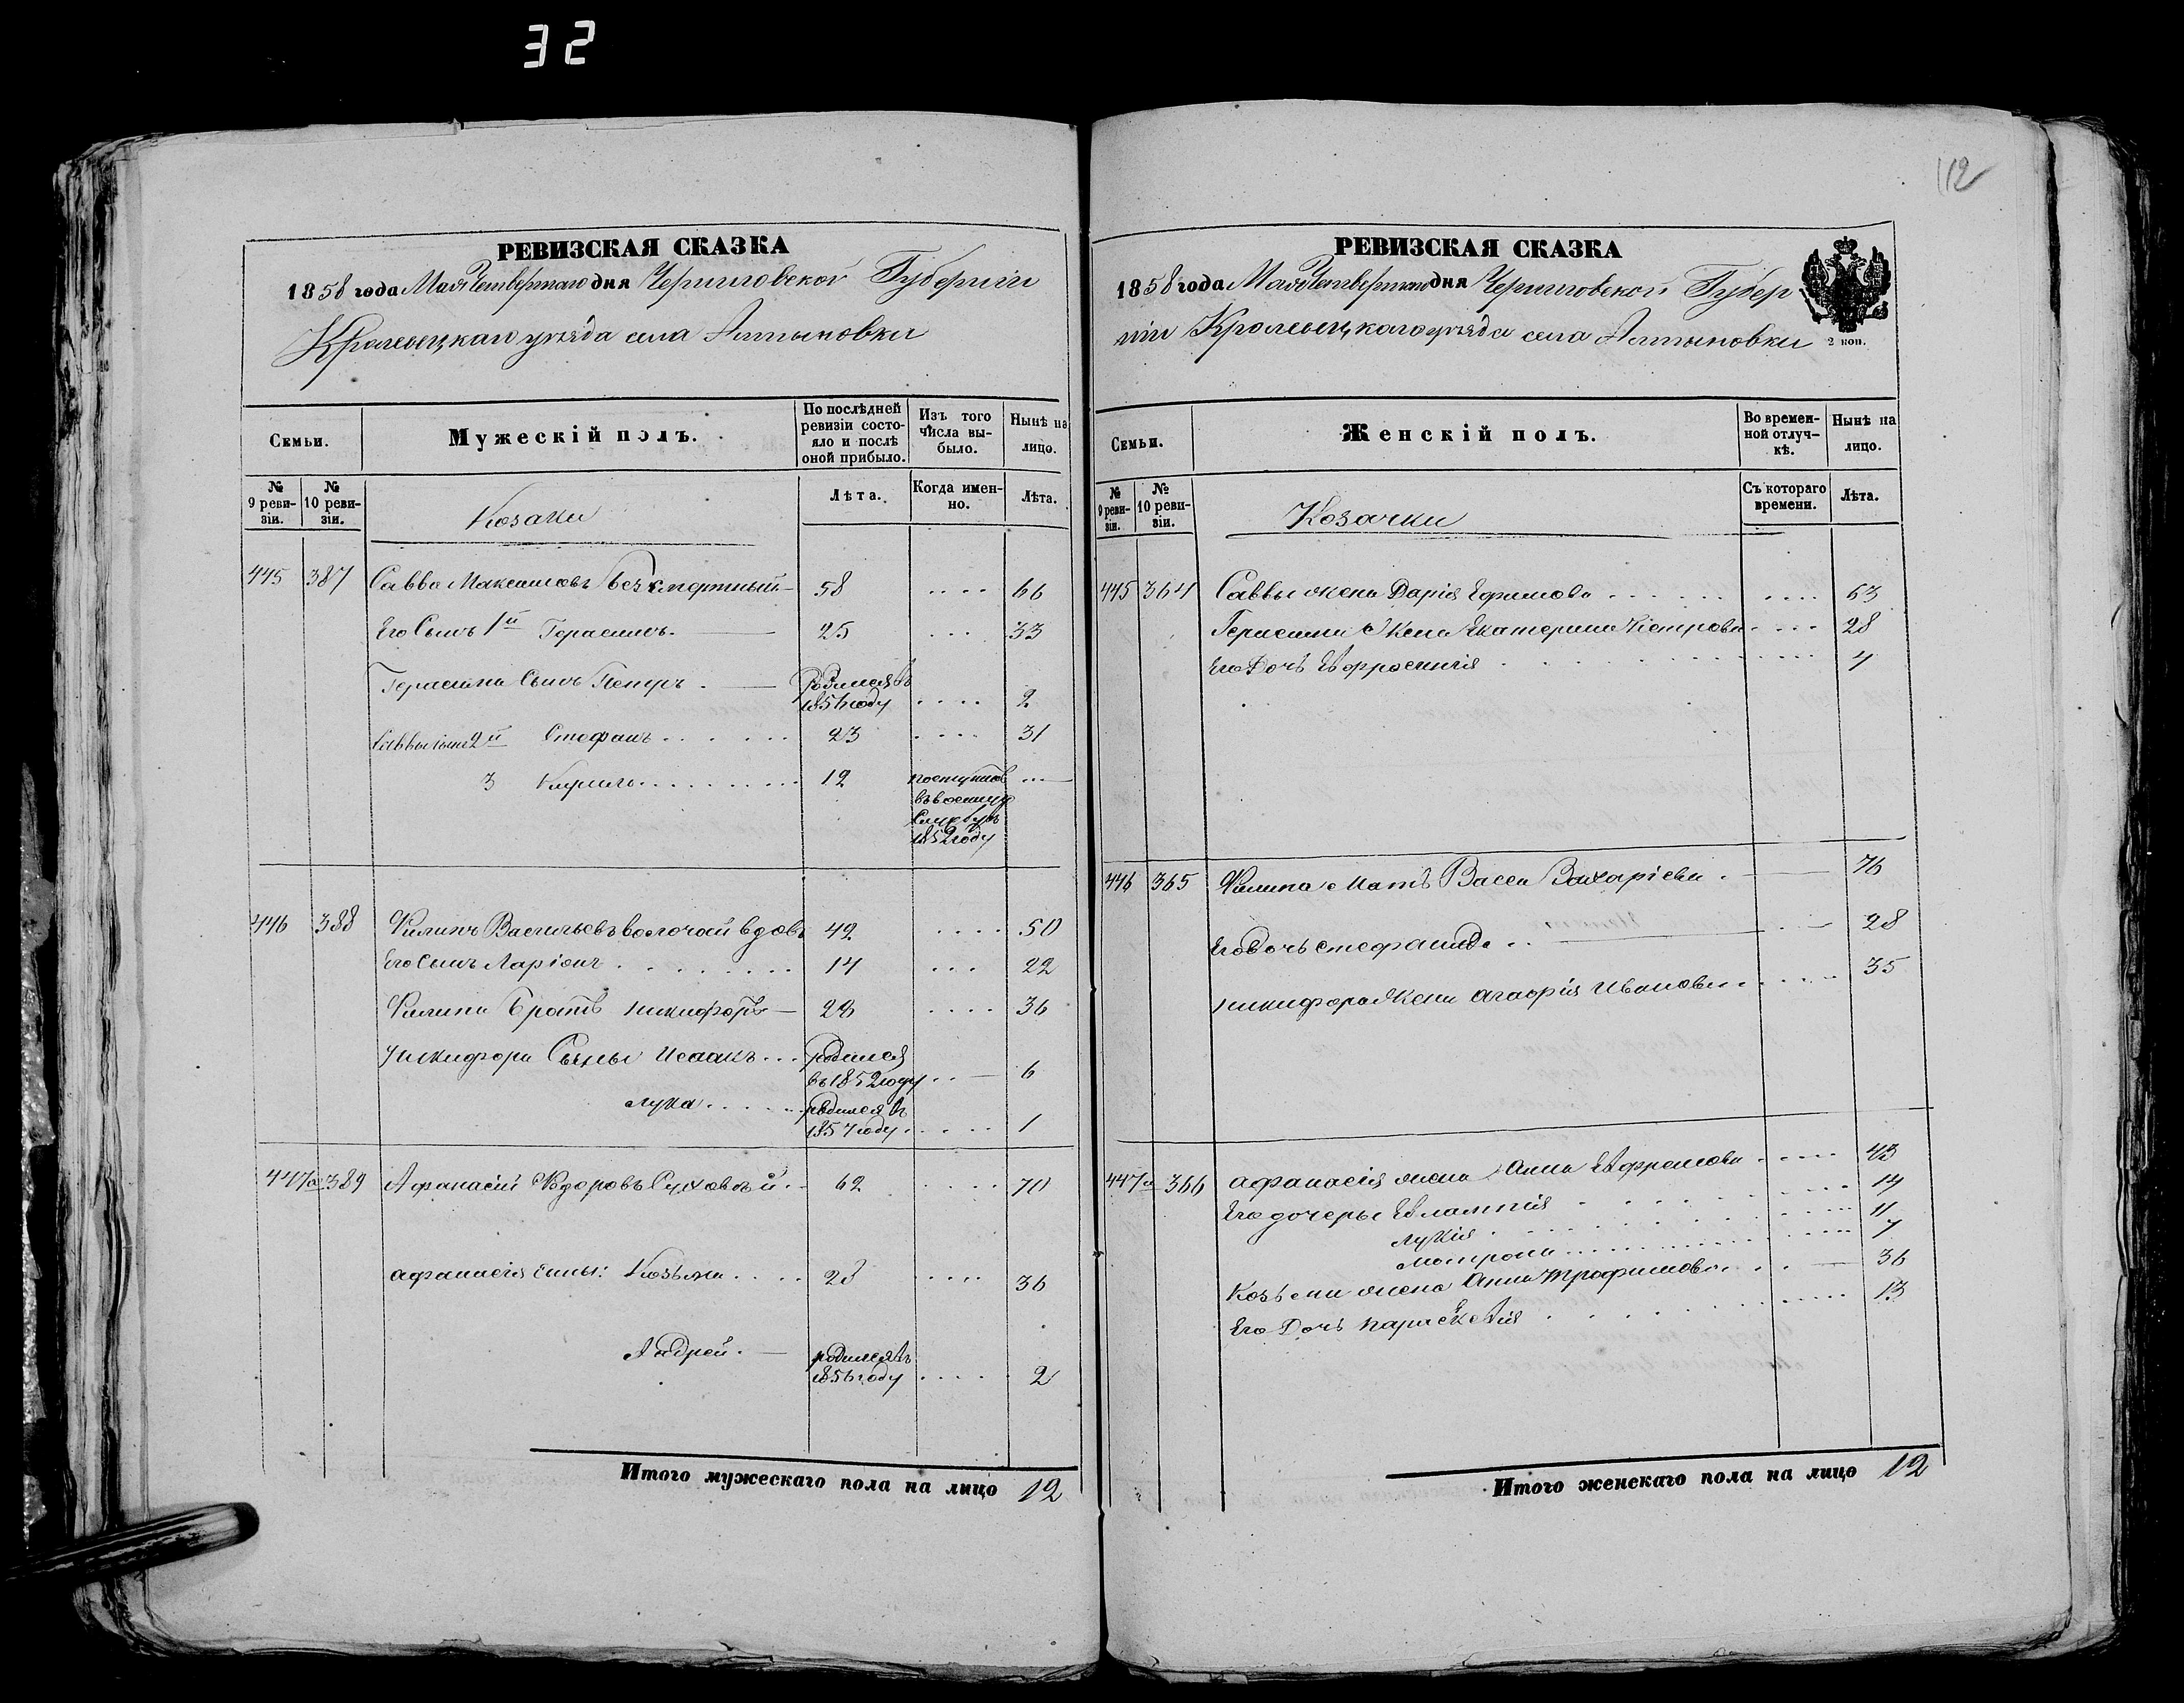 32
РЕВИЗСКАЯ СКАЗКА
1858 года Мая Четвертаго дня Черниговской Губерніи
Кролевецкаго уѣзда села Алтыновки
Семьи.
Мужескій полъ.
По послѣдней ревизіи состояло и послѣ оной прибыло.
Изъ того числа выбыло.
Нынѣ на лицо.
№ 9 ревизіи.
№ 10 ревизіи.
Козаки
Лѣта.
Когда именно.
Лѣта.
445 387 Савва Максимовъ Безсмертный 58 .... 66
Его Сынъ 1й Герасимъ. 25 ... 33
Герасима Сынъ Петръ. Родился въ
1856 году .... 2
Саввы сыны 2й Стефанъ ...... 23 .... 31
3 Кирилъ ........ 12 поступилъ ...
въ военную
службу въ
1852 году
446 388 Филипъ Васильевъ вдовъ 42 .... 50
Его Сынъ Ларіонъ ........ 14 ... 22
Филипа Братъ Никифоръ 28 .... 36
Никифора Сыны Исаакъ ... родился
въ 1852 году .. 6
Лука ..... родился въ
1857 году ..... 1
447а 389 Афанасій Федоровъ .. 62 .... 70
Афанасія сыны: Козьма .... 28 .... 36
Андрей. родился въ
1856 году .... 2
Итого мужескаго пола на лицо 12
112
РЕВИЗСКАЯ СКАЗКА
1858 года Мая Четвертаго дня Черниговской Губер
ніи Кролевецкаго уѣзда села Алтыновки
2 коп.
Семьи.
Женскій полъ.
Во временной отлучкѣ.
Нынѣ на лицо.
№ 9 ревизіи.
№ 10 ревизіи.
Козачки
Съ котораго времени.
Лѣта.
445 364 Саввы жена Дарія Ефимова ...... .... 63
Герасима Жена Екатерина Петрова .... 28
Его Дочь Евфросинія ........ 4
446 365 Филипа Мать Васса Захаріева . 76
Его дочь Стефанида .. 28
Никифора Жена Агафія Иванова ..... 35
447а 366 Афанасія жена Анна Евфремова ..... 43
Его дочеры Евлампія ..... 14
Лукія ........ 11
Мотрона ........ 7
Козьми жена Анна Трофимова ... 36
Его Дочь Параскевія ........ 13
Итого женскаго пола на лицо 12